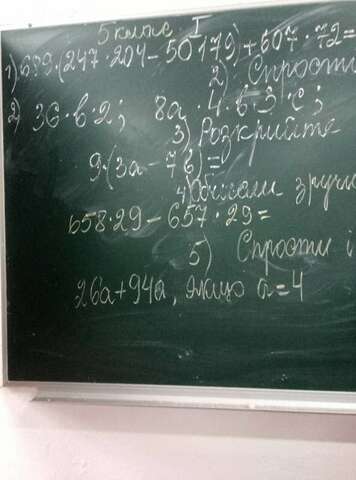 5 клас I
1) 689·(247·204-50179)+607·72=
2) Спрости
2) 36·в·2; 8а·4·в·3·с;
3) Розкрийте
9·(3а-7в)=
4) Обчисли зруч
658·29-657·29=
5) Спрости і
26а+94а, якщо а=4